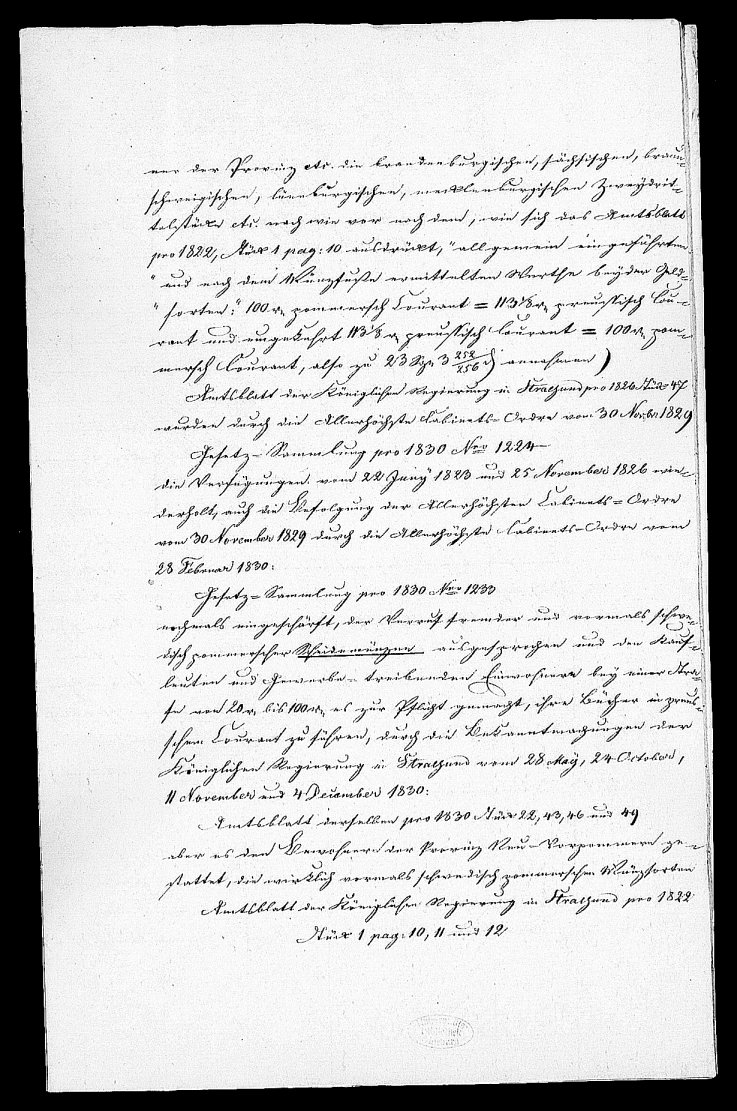 ner der Provinz etc. die brandenburgischen, sächsischen, braun-
schweigischen, lüneburgischen, mecklenburgischen Zweydrit-
telstücke etc. nach wie vor nach dem, wie sich das Amtsblatt
pro 1822, Stück 1 pag: 10 ausdrückt, "allgemein eingeführten
"und nach dem Münzfuße ermittelten Werthe beyder Geld-
"sorten": 100 rt pommersch Courant = 113 1/8 rt preussisch Cou-
rant und umgekehrt 113 1/8 rt preussisch Courant = 100 rt pom-
mersch Courant, also zu 23 Sgr 3 252/256 annehmen)
Amtsblatt der Königlichen Regierung in Stralsund pro 1826 Stück 47
wurden durch die Allerhöchste Cabinets-Ordre vom 30 Novbr 1829
Gesetz-Sammlung pro 1830 Nro 1224
die Verfügungen vom 22 Juny 1823 und 25 November 1826 wie-
derholt, auch die Befolgung der Allerhöchsten Cabinets-Ordre
vom 30 November 1829 durch die Allerhöchste Cabinets-Ordre vom
28 Februar 1830:
Gesetz-Sammlung pro 1830 Nro 1233
nochmals eingeschärft, der Verruf fremder und vormals schwe-
disch pommerscher Scheidemünzen ausgesprochen und den Kauf-
leuten und Gewerbe-treibenden Einwohnern bey einer Stra-
fe von 20 rt bis 100 rt es zur Pflicht gemacht, ihre Bücher in preus-
schem Courant zu führen, durch die Bekanntmachungen der
Königlichen Regierung in Stralsund vom 28 May, 24 October,
11 November und 4 December 1830:
Amtsblatt derselben pro 1830 Stück 22, 43, 46 und 49
aber es den Bewohnern der Provinz Neu-Vorpommern ge-
stattet, die wirklich vormals schwedisch pommerschen Münzsorten
Amtsblatt der Königlichen Regierung in Stralsund pro 1822
Stück 1 pag: 10, 11 und 12